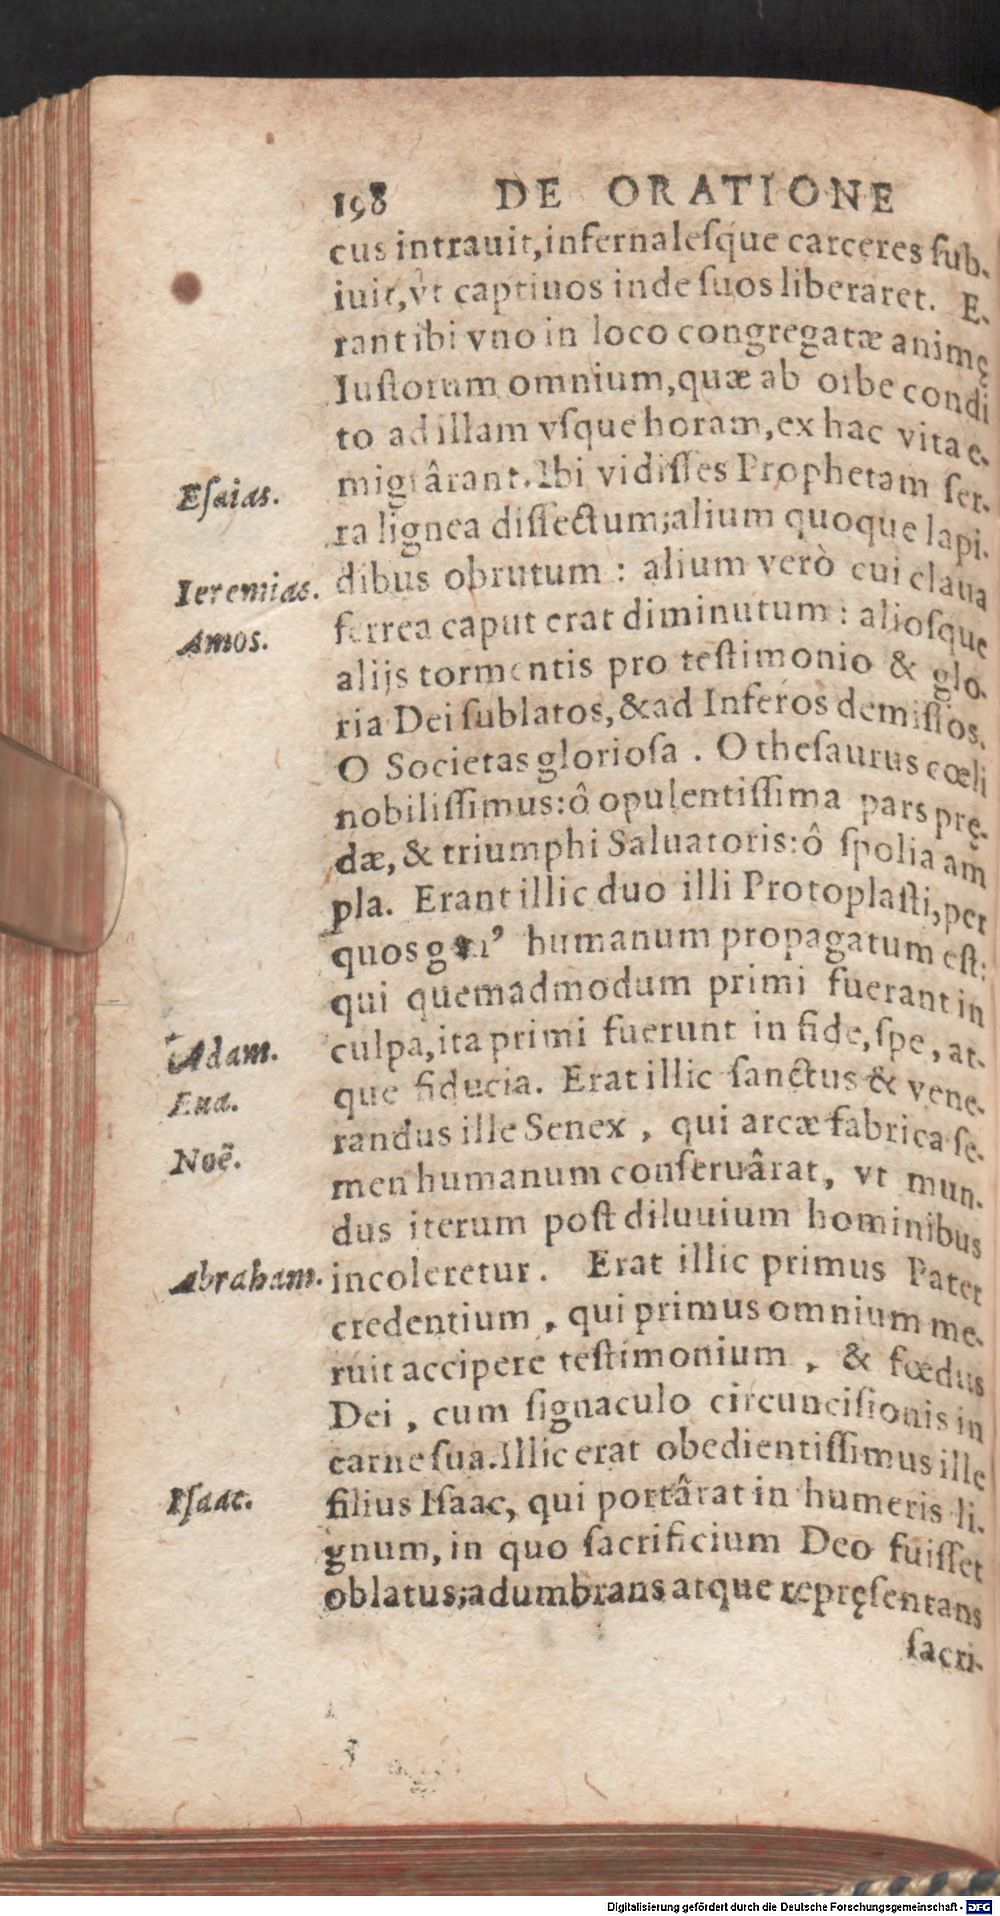 198 DE ORATIONE
cus intrauit, infernalesque carceres sub-
iuit, vt captiuos inde suos liberaret. E-
rant ibi vno in loco congregatæ animę
Iustorum omnium, quæ ab orbe condi
to ad illam vsque horam, ex hac vita e-
migrârant. Ibi vidisses Prophetam ser-
Esaias.
ra lignea dissectum; alium quoque lapi-
Ieremias.
dibus obrutum : alium verò cui claua
Amos.
ferrea caput erat diminutum : aliosque
alijs tormentis pro testimonio & glo-
ria Dei sublatos, & ad Inferos demissos.
O Societas gloriosa . O thesaurus cœli
nobilissimus: ô opulentissima pars prę-
dæ, & triumphi Saluatoris: ô spolia am̃
pla. Erant illic duo illi Protoplasti, per
quos gen’ humanum propagatum est:
qui quemadmodum primi fuerant in
Adam.
culpa, ita primi fuerunt in fide, spe, at-
Eua.
que fiducia. Erat illic sanctus & vene-
Noë.
randus ille Senex , qui arcæ fabrica se-
men humanum conseruârat, vt mun-
dus iterum post diluuium hominibus
Abraham.
incoleretur. Erat illic primus Pater
credentium , qui primus omnium me-
ruit accipere testimonium , & fœdus
Dei , cum signaculo circuncisionis in
carne sua. Illic erat obedientissimus ille
Isaac.
filius Isaac, qui portârat in humeris li-
gnum, in quo sacrificium Deo fuisset
oblatus; adumbrans atque repręsentans
sacri-
Digitalisierung gefördert durch die Deutsche Forschungsgemeinschaft - DFG